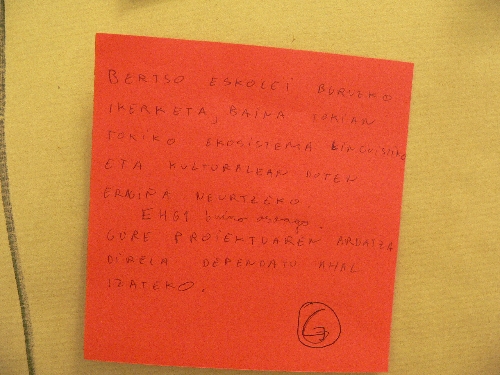 BERTSO ESKOLEI BURUZKO
IKERKETA, BAINA
TOKIKO EKOSISTEMA LINGUISTIKO
ETA KULTURALEAN DUTEN
ERAGINA NEURTZEKO.
EHGI baino
GURE PROIEKTUAREN ARDATZA
DIRELA DEFENDATU AHAL
IZATEKO.